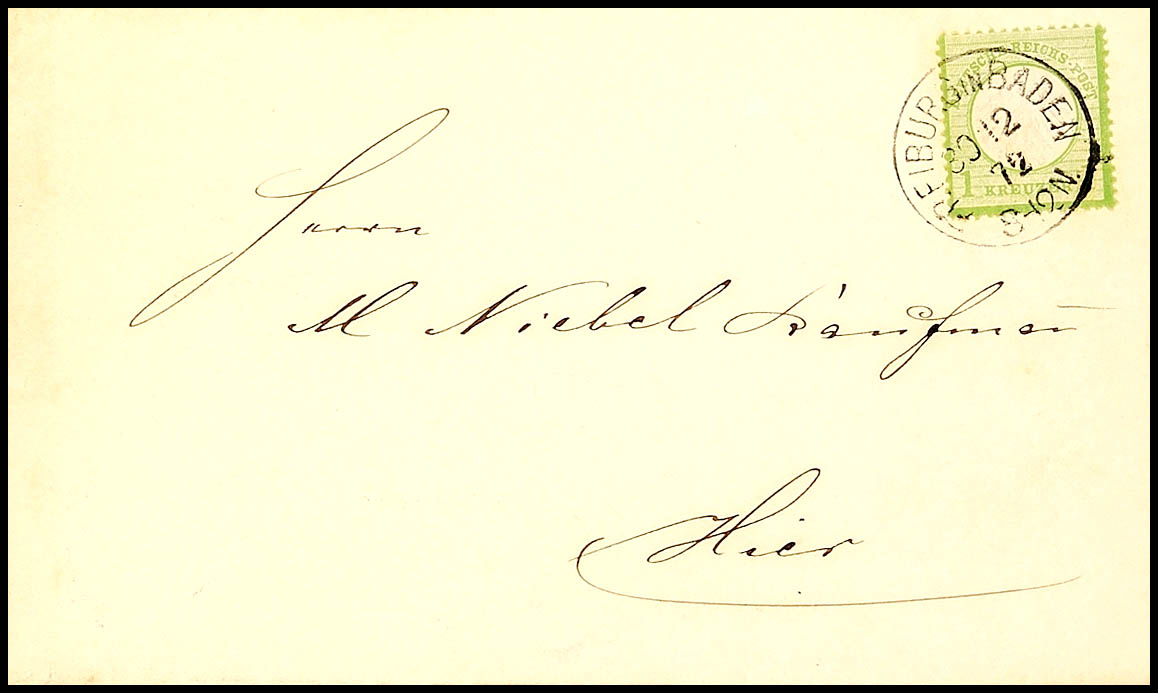 DEUTSCHE REICHS-POST
1 KREUZER
FREIBURG IN BADEN
30 12
72
8-12 N.
Herrn
M Niebel Kaufman
Hier